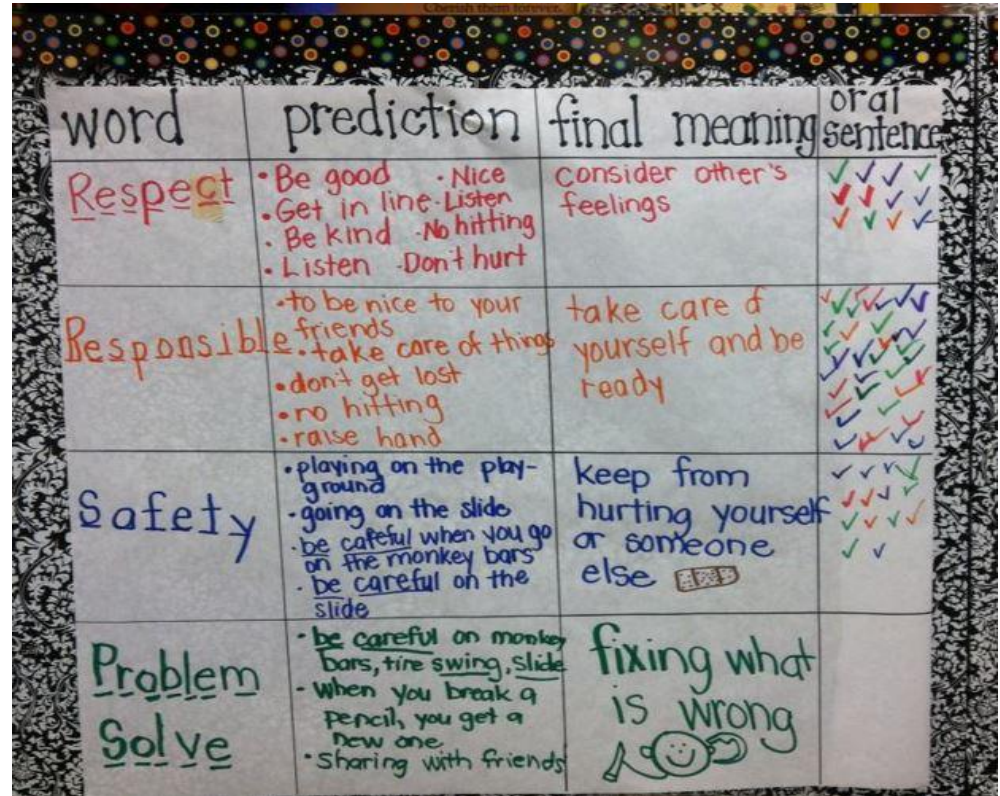 Cherish them forever.
word prediction final meaning oral sentence
Respect
• Be good • Nice
• Get in line • Listen
• Be kind • No hitting
• Listen • Don't hurt
consider other's
feelings
Responsible
• to be nice to your
friends
• take care of things
• don't get lost
• no hitting
• raise hand
take care of
yourself and be
ready
Safety
• playing on the play-
ground
• going on the slide
• be careful when you go
on the monkey bars
• be careful on the
slide
keep from
hurting yourself
or someone
else
Problem
Solve
• be careful on monkey
bars, tire swing, slide
• when you break a
pencil, you get a
new one
• sharing with friends
fixing what
is wrong